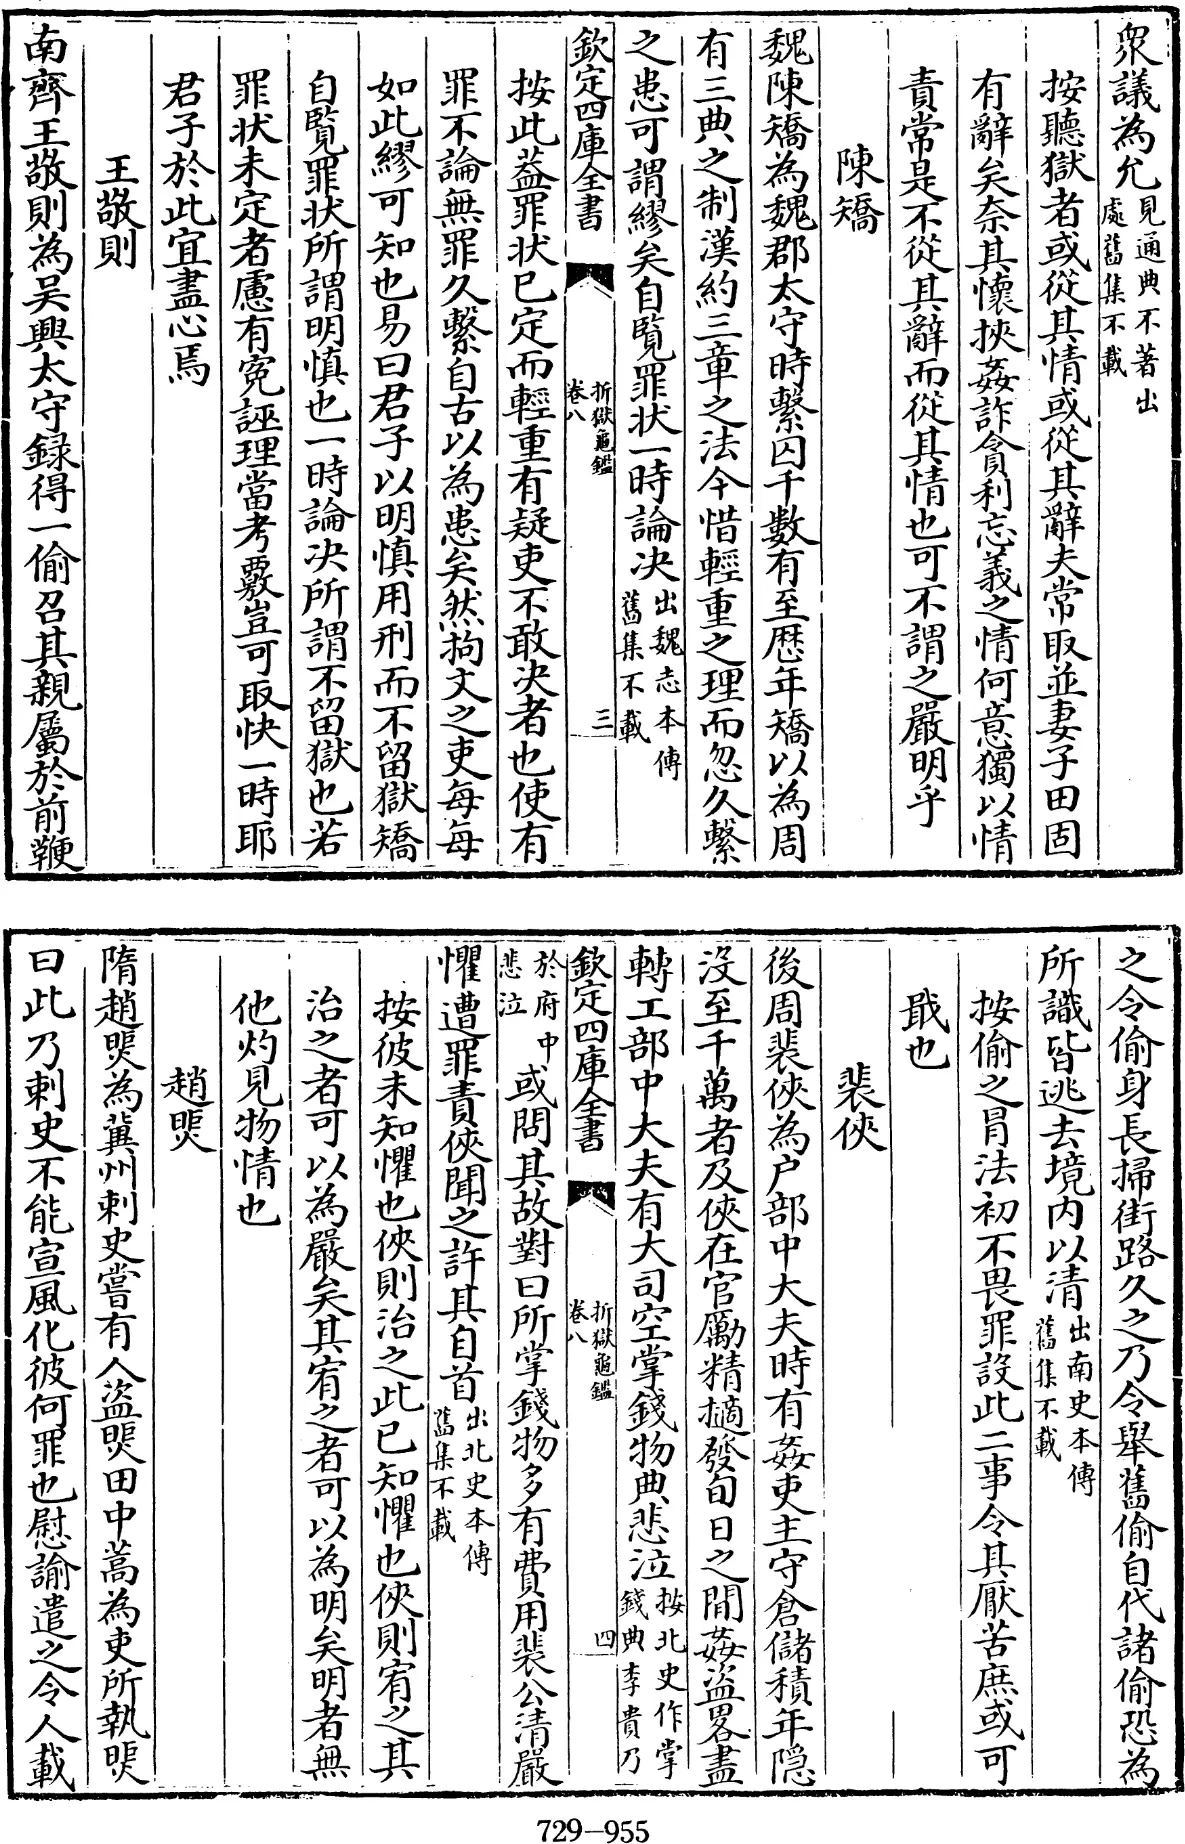 衆議為允見通典不著出
處舊集不載
按聽獄者或從其情或從其辭夫常取並妻子田固
有辭矣奈其懷挾姦詐貪利忘義之情何意獨以情
責常是不從其辭而從其情也可不謂之嚴明乎
陳矯
魏陳矯為魏郡太守時繫囚千數有至歴年矯以為周
有三典之制漢約三章之法今惜輕重之理而忽久繫
之患可謂繆矣自覧罪狀一時論决出魏志本傳
舊集不載
欽定四庫全書
折獄龜鑑
卷八
三
按此蓋罪狀已定而輕重有疑吏不敢决者也使有
罪不論無罪久繫自古以為患矣然拘文之吏每每
如此繆可知也易曰君子以明慎用刑而不留獄矯
自覧罪狀所謂明慎也一時論决所謂不留獄也若
罪狀未定者慮有寃誣理當考覈豈可取快一時耶
君子於此宜盡心焉
王敬則
南齊王敬則為吳興太守録得一偷召其親屬於前鞭
之令偷身長掃街路久之乃令舉舊偷自代諸偷恐為
所識皆逃去境内以清出南史本傳
舊集不載
按偷之冒法初不畏罪設此二事令其厭苦庶或可
戢也
裴俠
後周裴俠為户部中大夫時有姦吏主守倉儲積年隠
没至千萬者及俠在官勵精擿發旬日之間姦盗畧盡
轉工部中大夫有大司空掌錢物典悲泣按北史作掌
錢典李貴乃
欽定四庫全書
折獄龜鑑
卷八
四
於府中
悲泣或問其故對曰所掌錢物多有費用裴公清嚴
懼遭罪責俠聞之許其自首出北史本傳
舊集不載
按彼未知懼也俠則治之此已知懼也俠則宥之其
治之者可以為嚴矣其宥之者可以為明矣明者無
他灼見物情也
趙煚
隋趙煚為冀州刺史嘗有人盗煚田中蒿為吏所執煚
曰此乃刺史不能宣風化彼何罪也慰諭遣之令人載
729-955